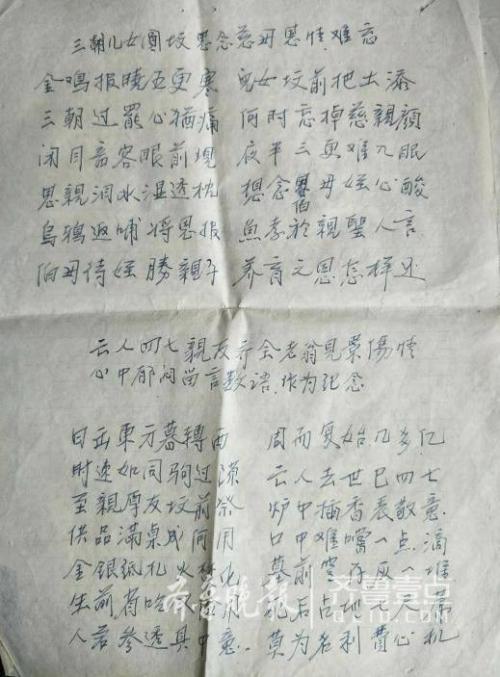 三朝儿女圆坟思念慈母恩情难忘
金鸣报晓五更寒 儿女坟前把土添
三朝过罢心犹痛 何时忘掉慈亲颜
闭目音容眼前现 夜半三更难入眠
思亲泪水湿透枕 想念伯母侄心酸
乌鸦返哺将恩报 鱼孝於親聖人言
伯母待侄勝親子 养育之恩怎样还
亡人四七親友齐会老翁見景傷情
心中郁闷留言数语.作为纪念
日出東方暮轉西 周而复始几多亿
时速如同驹过隙 亡人去世已四七
至親厚友坟前祭 炉中插香表敬意
供品满桌成何用 口中难嚐一点滴
金银纸扎火焚化 墓前空存灰一堆
生前 死后占地七尺
人若参透其中意.. 莫为名利費心机
齐鲁晚报 齐鲁壹点